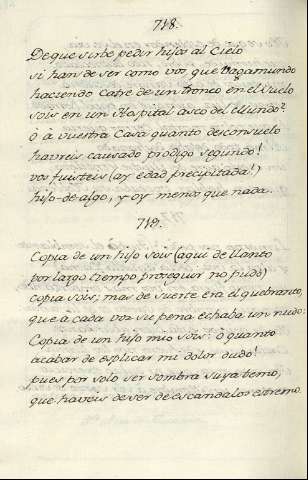 718.
De que sirbe pedir hijos al Cielo
si han de ser como vos, que Vagamundo
haciendo Catre de un tronco en el suelo
sois en un Hospital asco del Mundo?
ò à vuestra Casa quanto desconsuelo
havreis causado prodigo segundo!
vos fuisteis (ay edad precipitada!)
hijo-de-algo, y oy menos que nada.
719.
Copia de un hijo sois (aqui de llanto
por largo tiempo proseguir no pudo)
copia sois; mas de suerte era el quebranto,
que à cada voz su pena echaba un nudo:
Copia de un hijo mio sois: ò quanto
acabar de esplicar mi dolor dudo!
pues por solo ser sombra suya temo,
que haveis de ser de escandalos estremo.